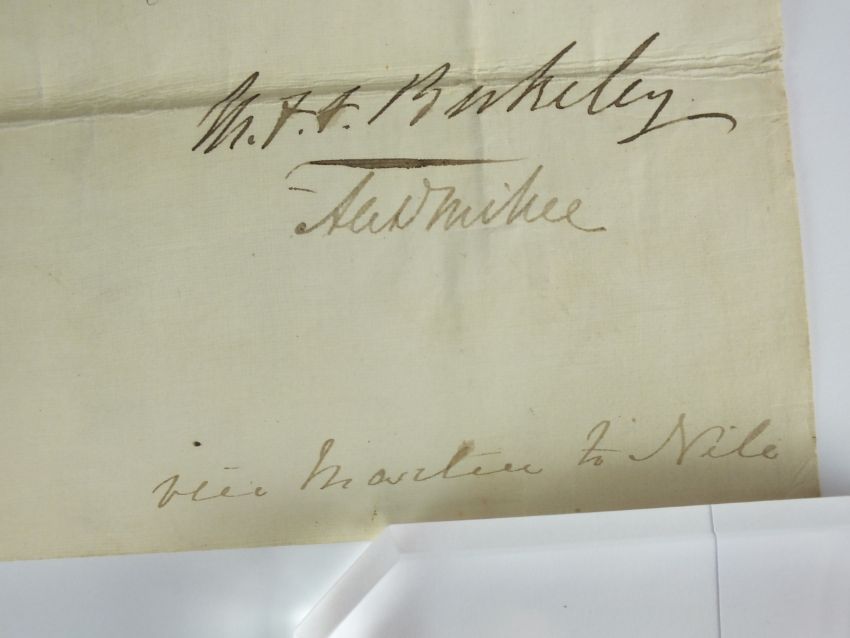 M. F. F. Berkeley
Alex Milne
vice Martin to Nile